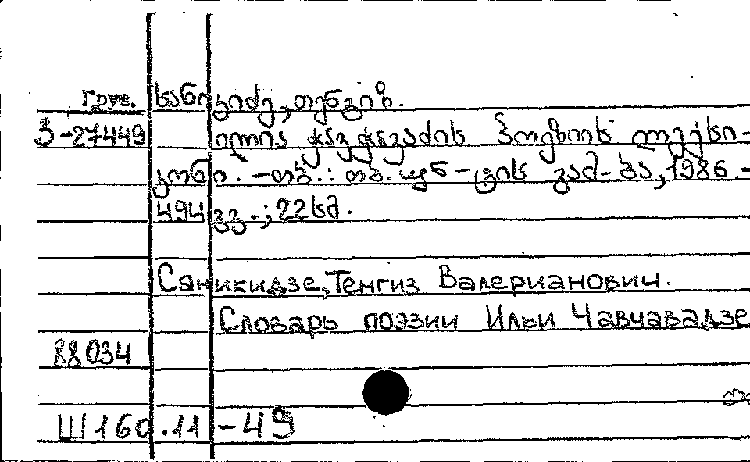 Груз. სანიკიძე, თენგიზ.
3-27449 ილია ჭავჭავაძის პოეზიის ლექსი-
კონი. - თბ.: თბ. უნ-ტის გამ-ბა, 1986 -
494 გვ.; 22 სმ.
Саникидзе, Тенгиз Валерианович.
Словарь поэзии Ильи Чавчавадзе
88034
Ш160.11-49